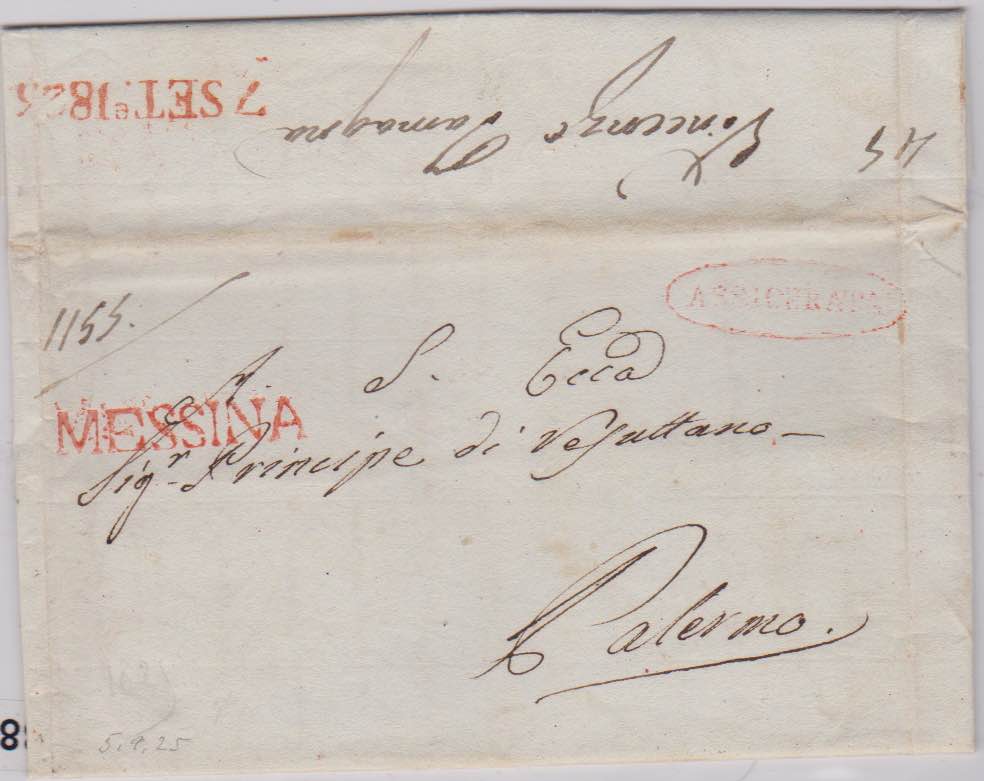 7 SET.e 1825
Vincenzo Tamagna
45
ASSICURATA
1155.
A S. Ecc.a
MESSINA
Sig.r Principe di Resuttano
Palermo.
5.9.25
8